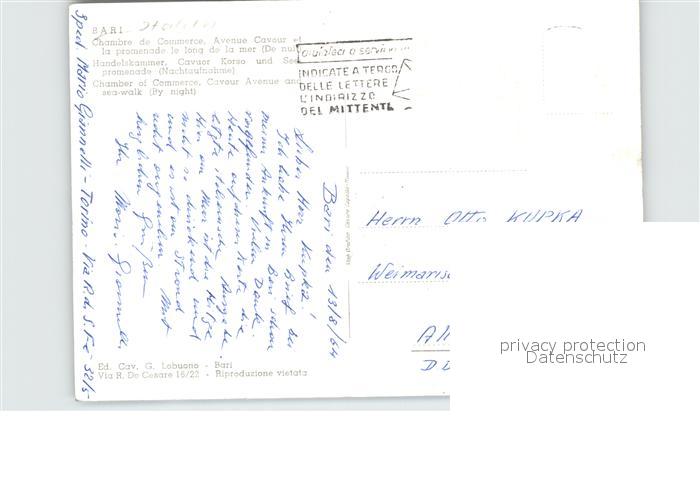 BARI - Italia
Chambre de Commerce, Avenue Cavour et
la promenade le long de la mer (De nuit)
Handelskammer, Cavour Korso und See-
promenade (Nachtaufnahme)
Chamber of Commerce, Cavour Avenue and
sea-walk (By night)
aiutateci a servirvi
INDICATE A TERGO
DELLE LETTERE
L'INDIRIZZO
DEL MITTENTE
Bari den 13/8/64
Lieber Herr Kupka!
Ich habe Ihren Brief bei
meiner Ankunft in Bari schon
vorgefunden. Vielen Dank.
Heute auf dieser Karte die
letzte italienische Ausgabe.
Hier am Meer ist die Hitze
nicht so drückend und
und es ist am Strand
recht angenehm. Mit
herzlichen Grüßen
Ihr Mario Giannelli
Sped. Mario Giannelli - Torino - Via P.d. S. Fè 32/5
Herrn Otto KUPKA
Weimaris
Al
DD
Ed. Cav. G. Lobuono - Bari
Via R. De Cesare 16/22 - Riproduzione vietata
privacy protection
Datenschutz